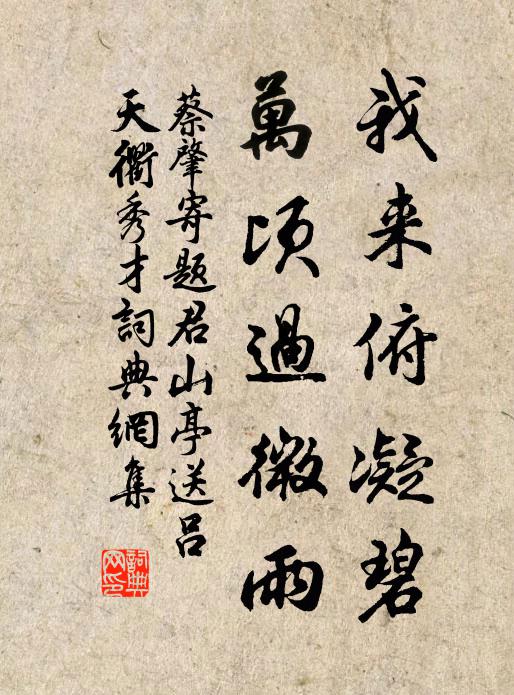 我来俯凝碧
萬頃過微雨
蔡肇寄題君山亭送呂
天衢秀才詞典網集
詞典
网印